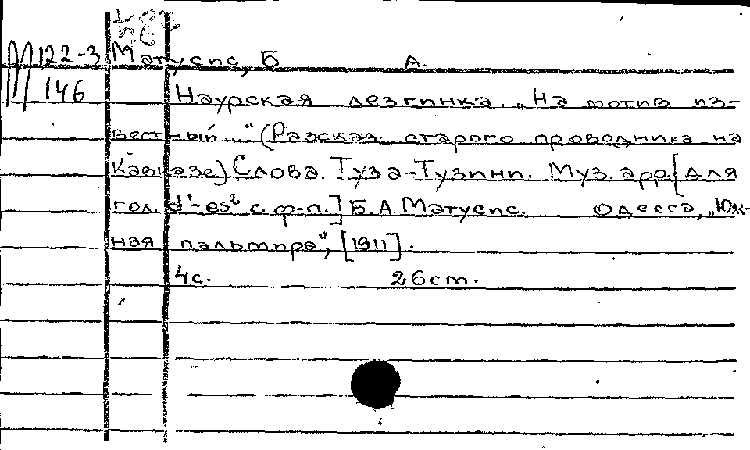 М 122-3 Матусис, Б А.
146 Наурская лезгинка. „На мотив из-
вестный..." (Рассказ старого проводника на
Кавказе) Слова. Туза-Тузини. Муз. арр. [для
гол. d¹-es² с. ф-п.] Б.А. Матусис. Одесса, „Юж-
ная пальмира", [1911].
4с. 26см.